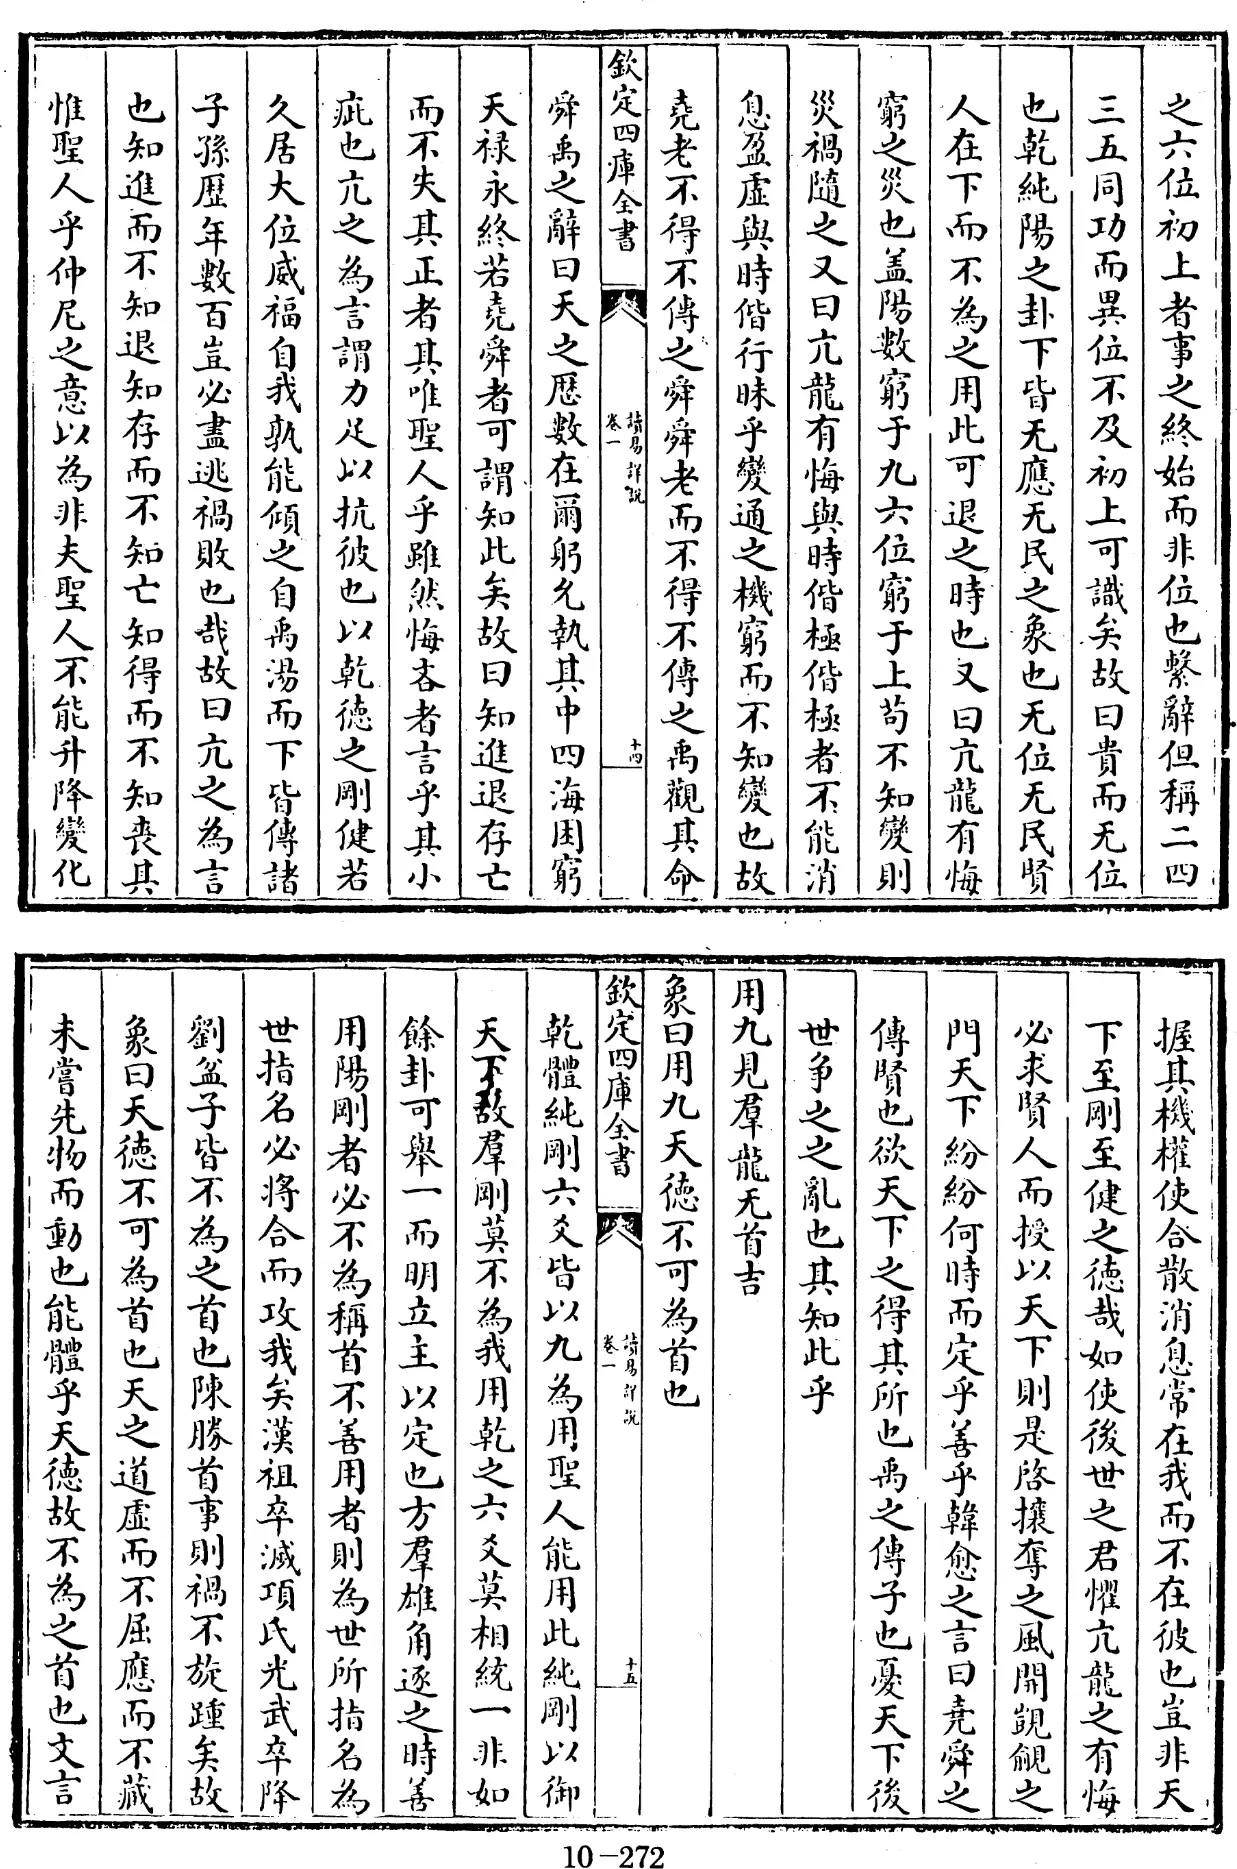 之六位初上者事之終始而非位也繫辭但稱二四
三五同功而異位不及初上可識矣故曰貴而无位
也乾純陽之卦下皆无應无民之象也无位无民賢
人在下而不為之用此可退之時也又曰亢龍有悔
窮之災也盖陽數窮于九六位窮于上苟不知變則
災禍隨之又曰亢龍有悔與時偕極偕極者不能消
息盈虛與時偕行昧乎變通之機窮而不知變也故
堯老不得不傳之舜舜老而不得不傳之禹觀其命
欽定四庫全書
讀易詳說
卷一
十四
舜禹之辭曰天之厯數在爾躬允執其中四海困窮
天禄永終若堯舜者可謂知此矣故曰知進退存亡
而不失其正者其唯聖人乎雖然悔吝者言乎其小
疵也亢之為言謂力足以抗彼也以乾徳之剛健若
久居大位威福自我孰能傾之自禹湯而下皆傳諸
子孫歴年數百豈必盡逃禍敗也哉故曰亢之為言
也知進而不知退知存而不知亡知得而不知喪其
惟聖人乎仲尼之意以為非夫聖人不能升降變化
握其機權使合散消息常在我而不在彼也豈非天
下至剛至健之徳哉如使後世之君懼亢龍之有悔
必求賢人而授以天下則是啓攘奪之風開覬覦之
門天下紛紛何時而定乎善乎韓愈之言曰堯舜之
傳賢也欲天下之得其所也禹之傳子也憂天下後
世争之之亂也其知此乎
用九見羣龍无首吉
象曰用九天徳不可為首也
欽定四庫全書
讀易詳說
卷一
十五
乾體純剛六爻皆以九為用聖人能用此純剛以御
天下故羣剛莫不為我用乾之六爻莫相統一非如
餘卦可舉一而明立主以定也方羣雄角逐之時善
用陽剛者必不為稱首不善用者則為世所指名為
世指名必將合而攻我矣漢祖卒滅項氏光武卒降
劉盆子皆不為之首也陳勝首事則禍不旋踵矣故
象曰天徳不可為首也天之道虛而不屈應而不藏
未嘗先物而動也能體乎天徳故不為之首也文言
10-272